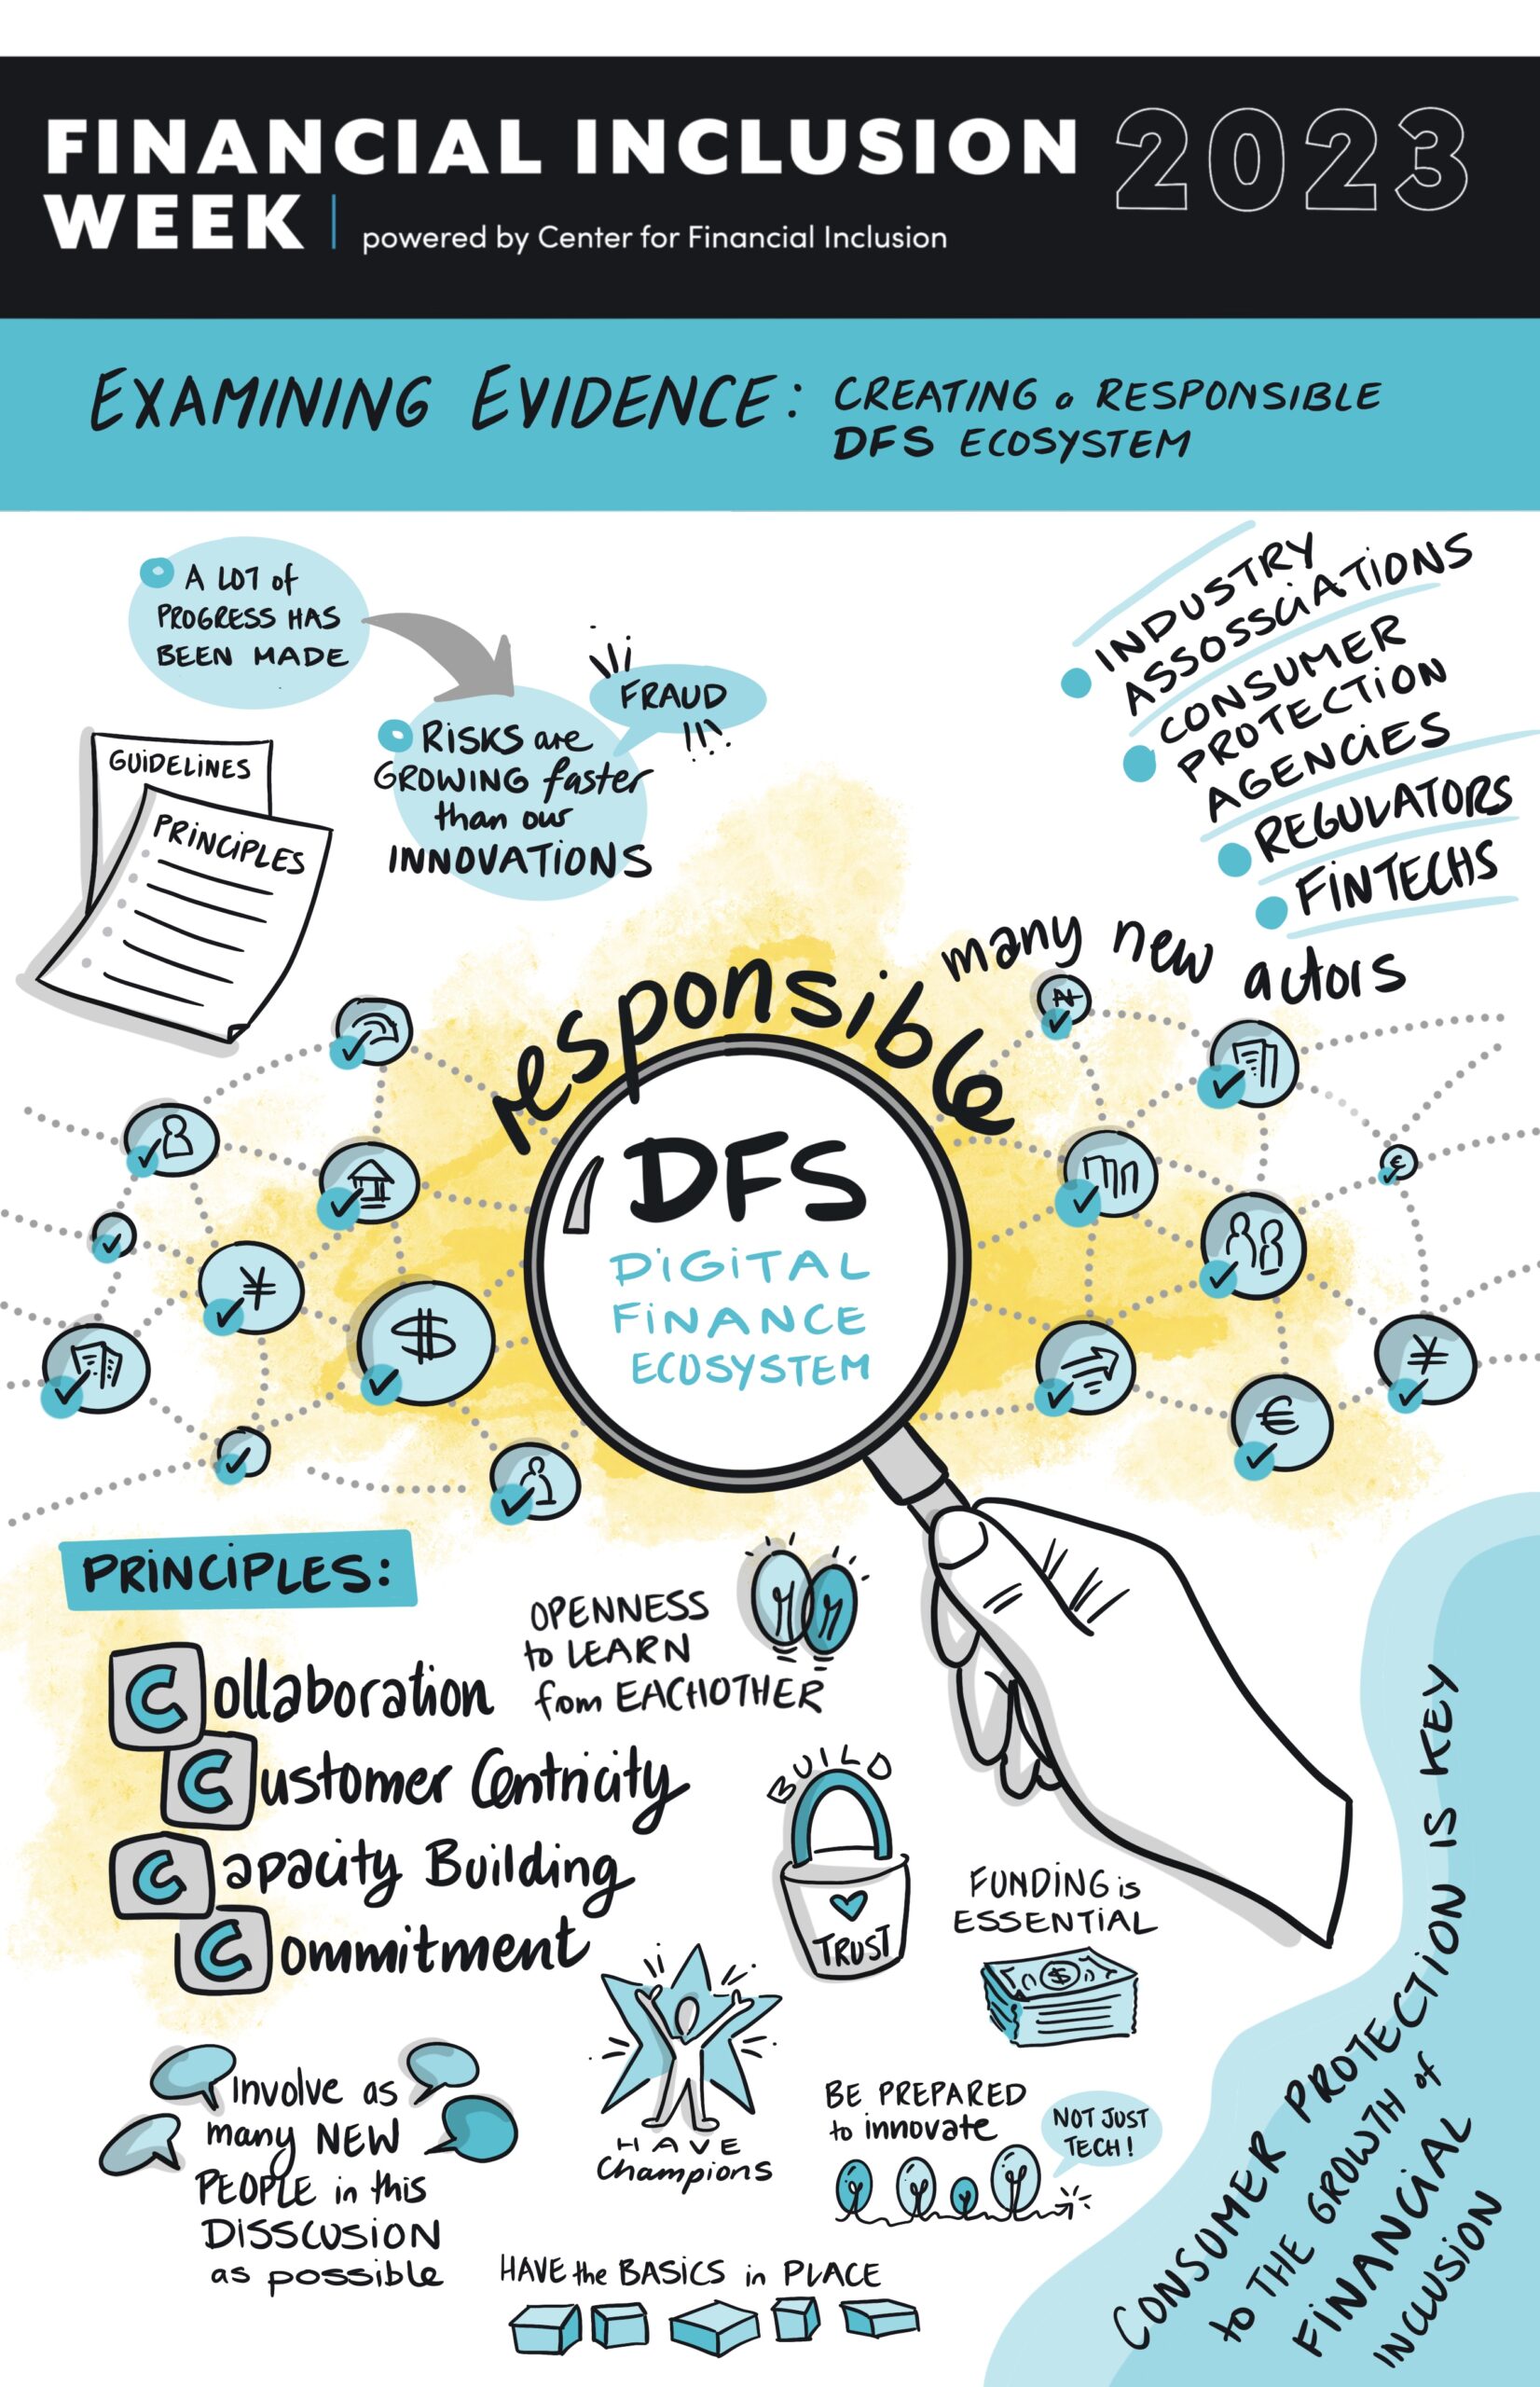 FINANCIAL INCLUSION 2023
WEEK
powered by Center for Financial Inclusion
EXAMINING EVIDENCE: CREATING a RESPONSIBLE
DFS ECOSYSTEM
A LOT of
PROGRESS HAS
BEEN MADE
RISKS are
GROWING faster
than our
INNOVATIONS
FRAUD
!!!
GUIDELINES
PRINCIPLES
INDUSTRY
ASSOSSCIATIONS
CONSUMER
PROTECTION
AGENCIES
REGULATORS
FINTECHS
many new actors
responsible
DFS
DIGITAL
FINANCE
ECOSYSTEM
¥
$
€
¥
€
PRINCIPLES:
Collaboration
Customer Centricity
Capacity Building
Commitment
OPENNESS
to LEARN
from EACHOTHER
BUILD
TRUST
FUNDING is
ESSENTIAL
$
HAVE
Champions
Involve as
many NEW
PEOPLE in this
DISSCUSION
as possible
BE PREPARED
to innovate
NOT JUST
TECH!
HAVE the BASICS in PLACE
CONSUMER PROTECTION IS KEY
to THE GROWTH of
FINANCIAL
INCLUSION